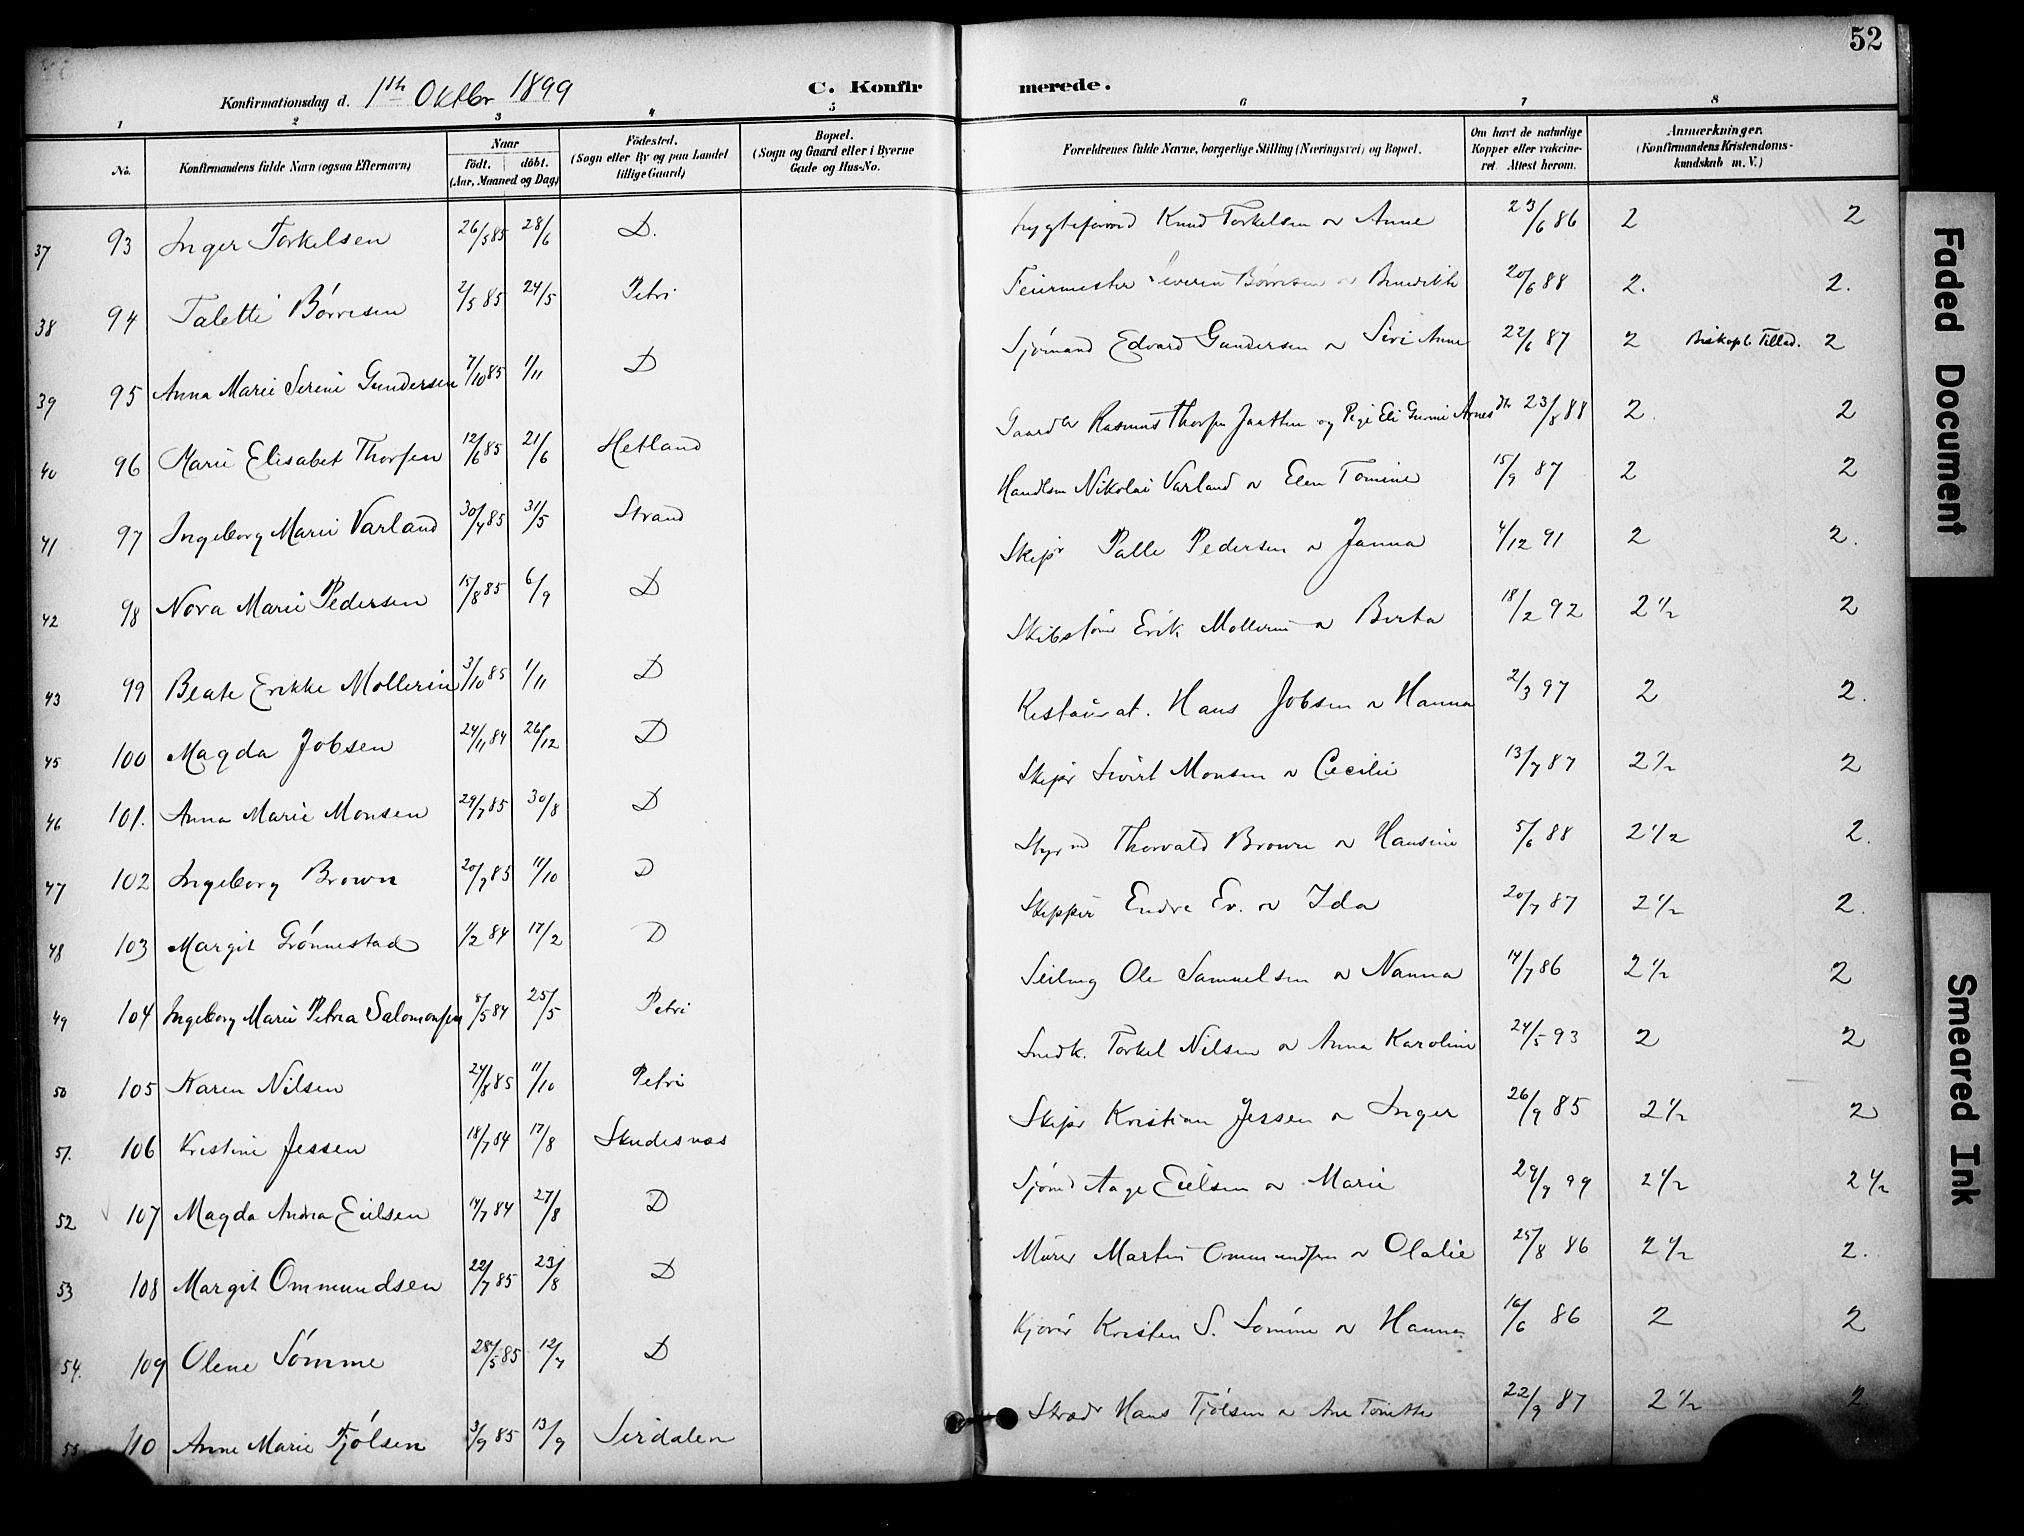 52
Konfirmationsdag d. 1ste Oktbr 1899
C. Konfirmerede.
1 2 3 4 5 6 7 8
No. Konfirmandens fulde Navn (ogsaa Efternavn) Naar födt. döbt. (Aar, Maaned og Dag) Födested. (Sogn eller By og paa Landet tillige Gaard) Bopæl. (Sogn og Gaard eller i Byerne Gade og Hus-No. Forældrenes fulde Navne, borgerlige Stilling (Næringsvei) og Bopæl. Om havt de naturlige Kopper eller vakcineret. Attest herom. Anmærkninger. (Konfirmandens Kristendomskundskab m. V.)
37 93 Inger Torkelsen 26/5 85 28/6 D. Knud Torkelsen o Anne 23/6 86 2 2
38 94 Talette Børresen 2/5 85 24/5 Petri Feiermester Severin Børresen o Benedikte 20/6 88 2. 2.
39 95 Anna Marie Serine Gundersen 7/10 85 1/11 D Sjømand Edvard Gundersen o Siri Anne 22/6 87 2 Biskopl. Tillad. 2
40 96 Marie Elisabet Thorsen 12/6 85 21/6 Hetland Gaardbr Rasmus Thorsen Jaatten og Pige Eli Gurine Arnesdtr 23/8 88 2. 2
41 97 Ingeborg Marie Varland 30/4 85 31/5 Strand Handlsm Nikolai Varland o Elen Tomine 15/9 87 2 2
42 98 Nora Marie Pedersen 15/8 85 6/9 D Skipr Palle Pedersen o Janna 4/12 91 2 2.
43 99 Beate Erikke Mollerin 3/10 85 1/11 D Skibstømr Erik Mollerin o Berta 18/2 92 2 1/2 2
45 100 Magda Jobsen 24/11 84 26/12 D Restaurat. Hans Jobsen o Hanna 2/3 97 2 2.
46 101. Anna Marie Monsen 29/7 85 30/8 D Skipr Sivert Monsen o Cecilie 13/7 87 2 1/2 2
47 102 Ingeborg Brown 20/7 85 11/10 D Styrmd Thorvald Brown o Hansine 5/6 88 2 1/2 2.
48 103 Margit Grønnestad 1/2 84 17/2 D Skipper Endre Ev. o Ida 20/7 87 2 1/2 2.
49 104 Ingeborg Marie Petrea Salomonsen 8/5 84 25/5 Petri Ole Samuelsen o Nanna 14/7 86 2 1/2 2
50 105 Karen Nilsen 24/8 85 11/10 Petri Snedk. Torkel Nilsen o Anna Karoline 24/5 93 2 2
51. 106 Kristine Jessen 18/7 84 17/8 Skudesnæs Skipr Kristian Jessen o Inger 26/9 85 2 1/2 2
52 107 Magda Andrea Eielsen 14/7 84 27/8 D Sjømd Aage Eielsen o Marie 29/9 99 2 1/2 2 1/2
53 108 Margit Ommundsen 22/7 85 23/8 D Murer Martin Ommundsen o Olalie 25/8 86 2 1/2 2.
54. 109 Olene Sømme 28/5 85 12/7 D Kjører Kristen S. Sømme o Hanna 16/6 86 2 2
55 110 Anne Marie Tjølsen 3/9 85 13/9 Sirdalen Hans Tjølsen o Ane Tonette 22/9 87 2 1/2 2.
Faded Document
Smeared Ink